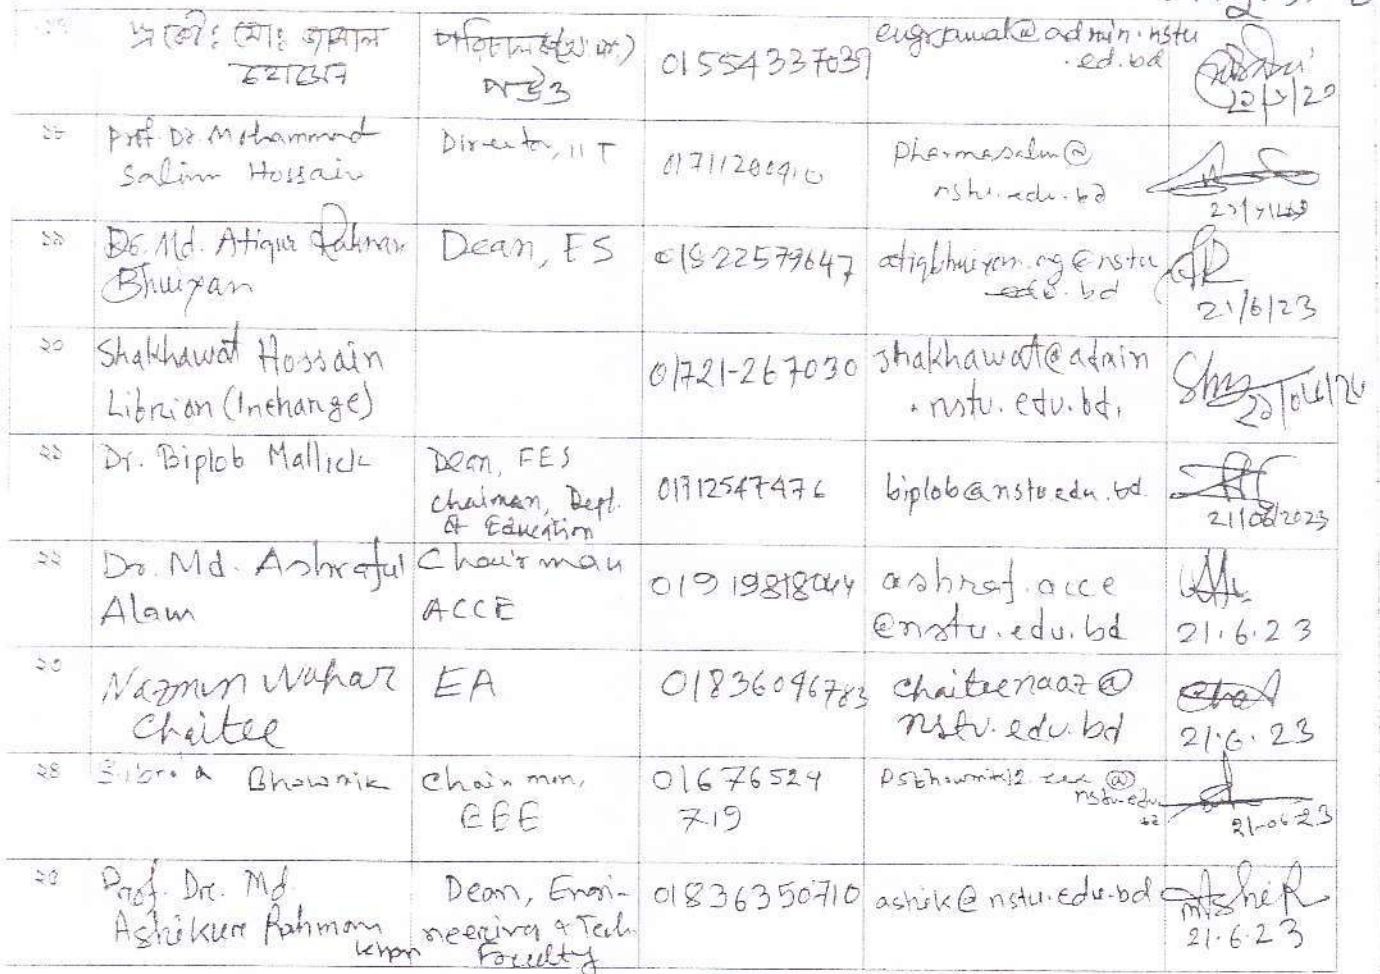 প্রকৌ: মোঃ জামাল
হোসেন
01554337039
engrjamal@admin.nstu
.ed.bd
১৮
Prof. Dr. Mohammad
Salim Hossain
Director, IIT
pharmasalim@
nstu.edu.bd
১৯
Dr. Md. Atiqur Rahman
Bhuiyan
Dean, ES
01822579647
atiqbhuiyan.ag@nstu
edu.bd
21/6/23
২০
Shakhawat Hossain
Librian (Incharge)
01721-267030
shakhawat@admin
.nstu.edu.bd.
২১
Dr. Biplob Mallick
Dean, FES
Chairman, Dept.
of Education
01712547476
biplob@nstu.edu.bd
21/06/2023
২২
Dr. Md. Ashraful
Alam
Chairman
ACCE
01919818044
ashraf.acce
@nstu.edu.bd
21.6.23
২৩
Nazmun Nahar
Chaitee
EA
01836096783
chaiteenaaz@
nstu.edu.bd
21.6.23
২৪
Bhowmik
Chairman,
EEE
01676529
719
nstu.edu.
bd
21-06-23
২৫
Prof. Dr. Md
Ashikur Rahman
Khan
Dean, Engi-
neering & Tech
Faculty
01836350710
ashik@nstu.edu.bd
Ashik
21.6.23